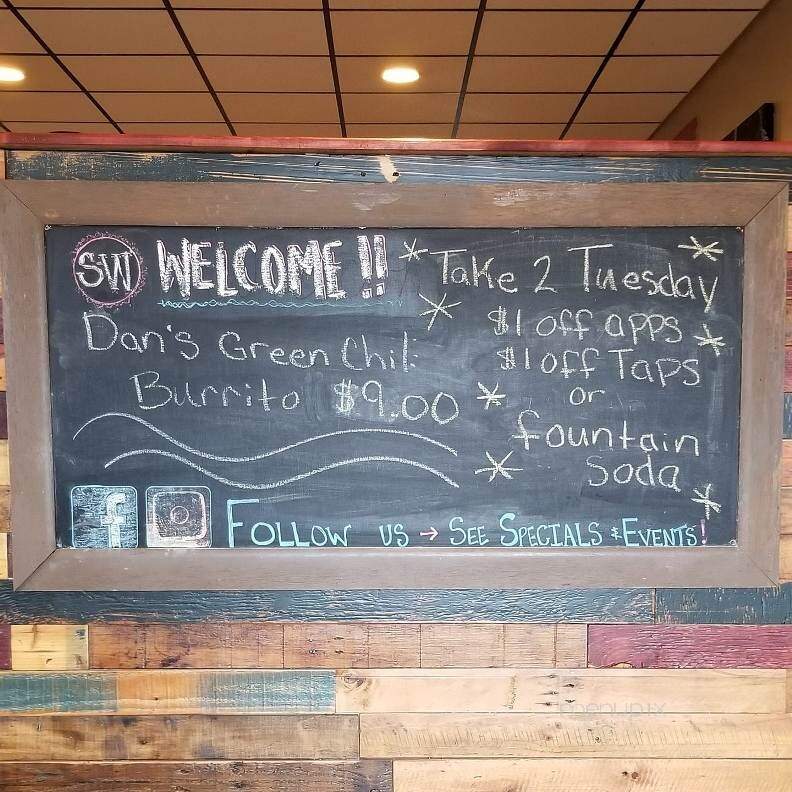 SW WELCOME!!
Dan's Green Chili
Burrito $9.00
Take 2 Tuesday
$1 off apps
$1 off Taps
or
fountain
soda
f FOLLOW US → SEE SPECIALS & EVENTS!